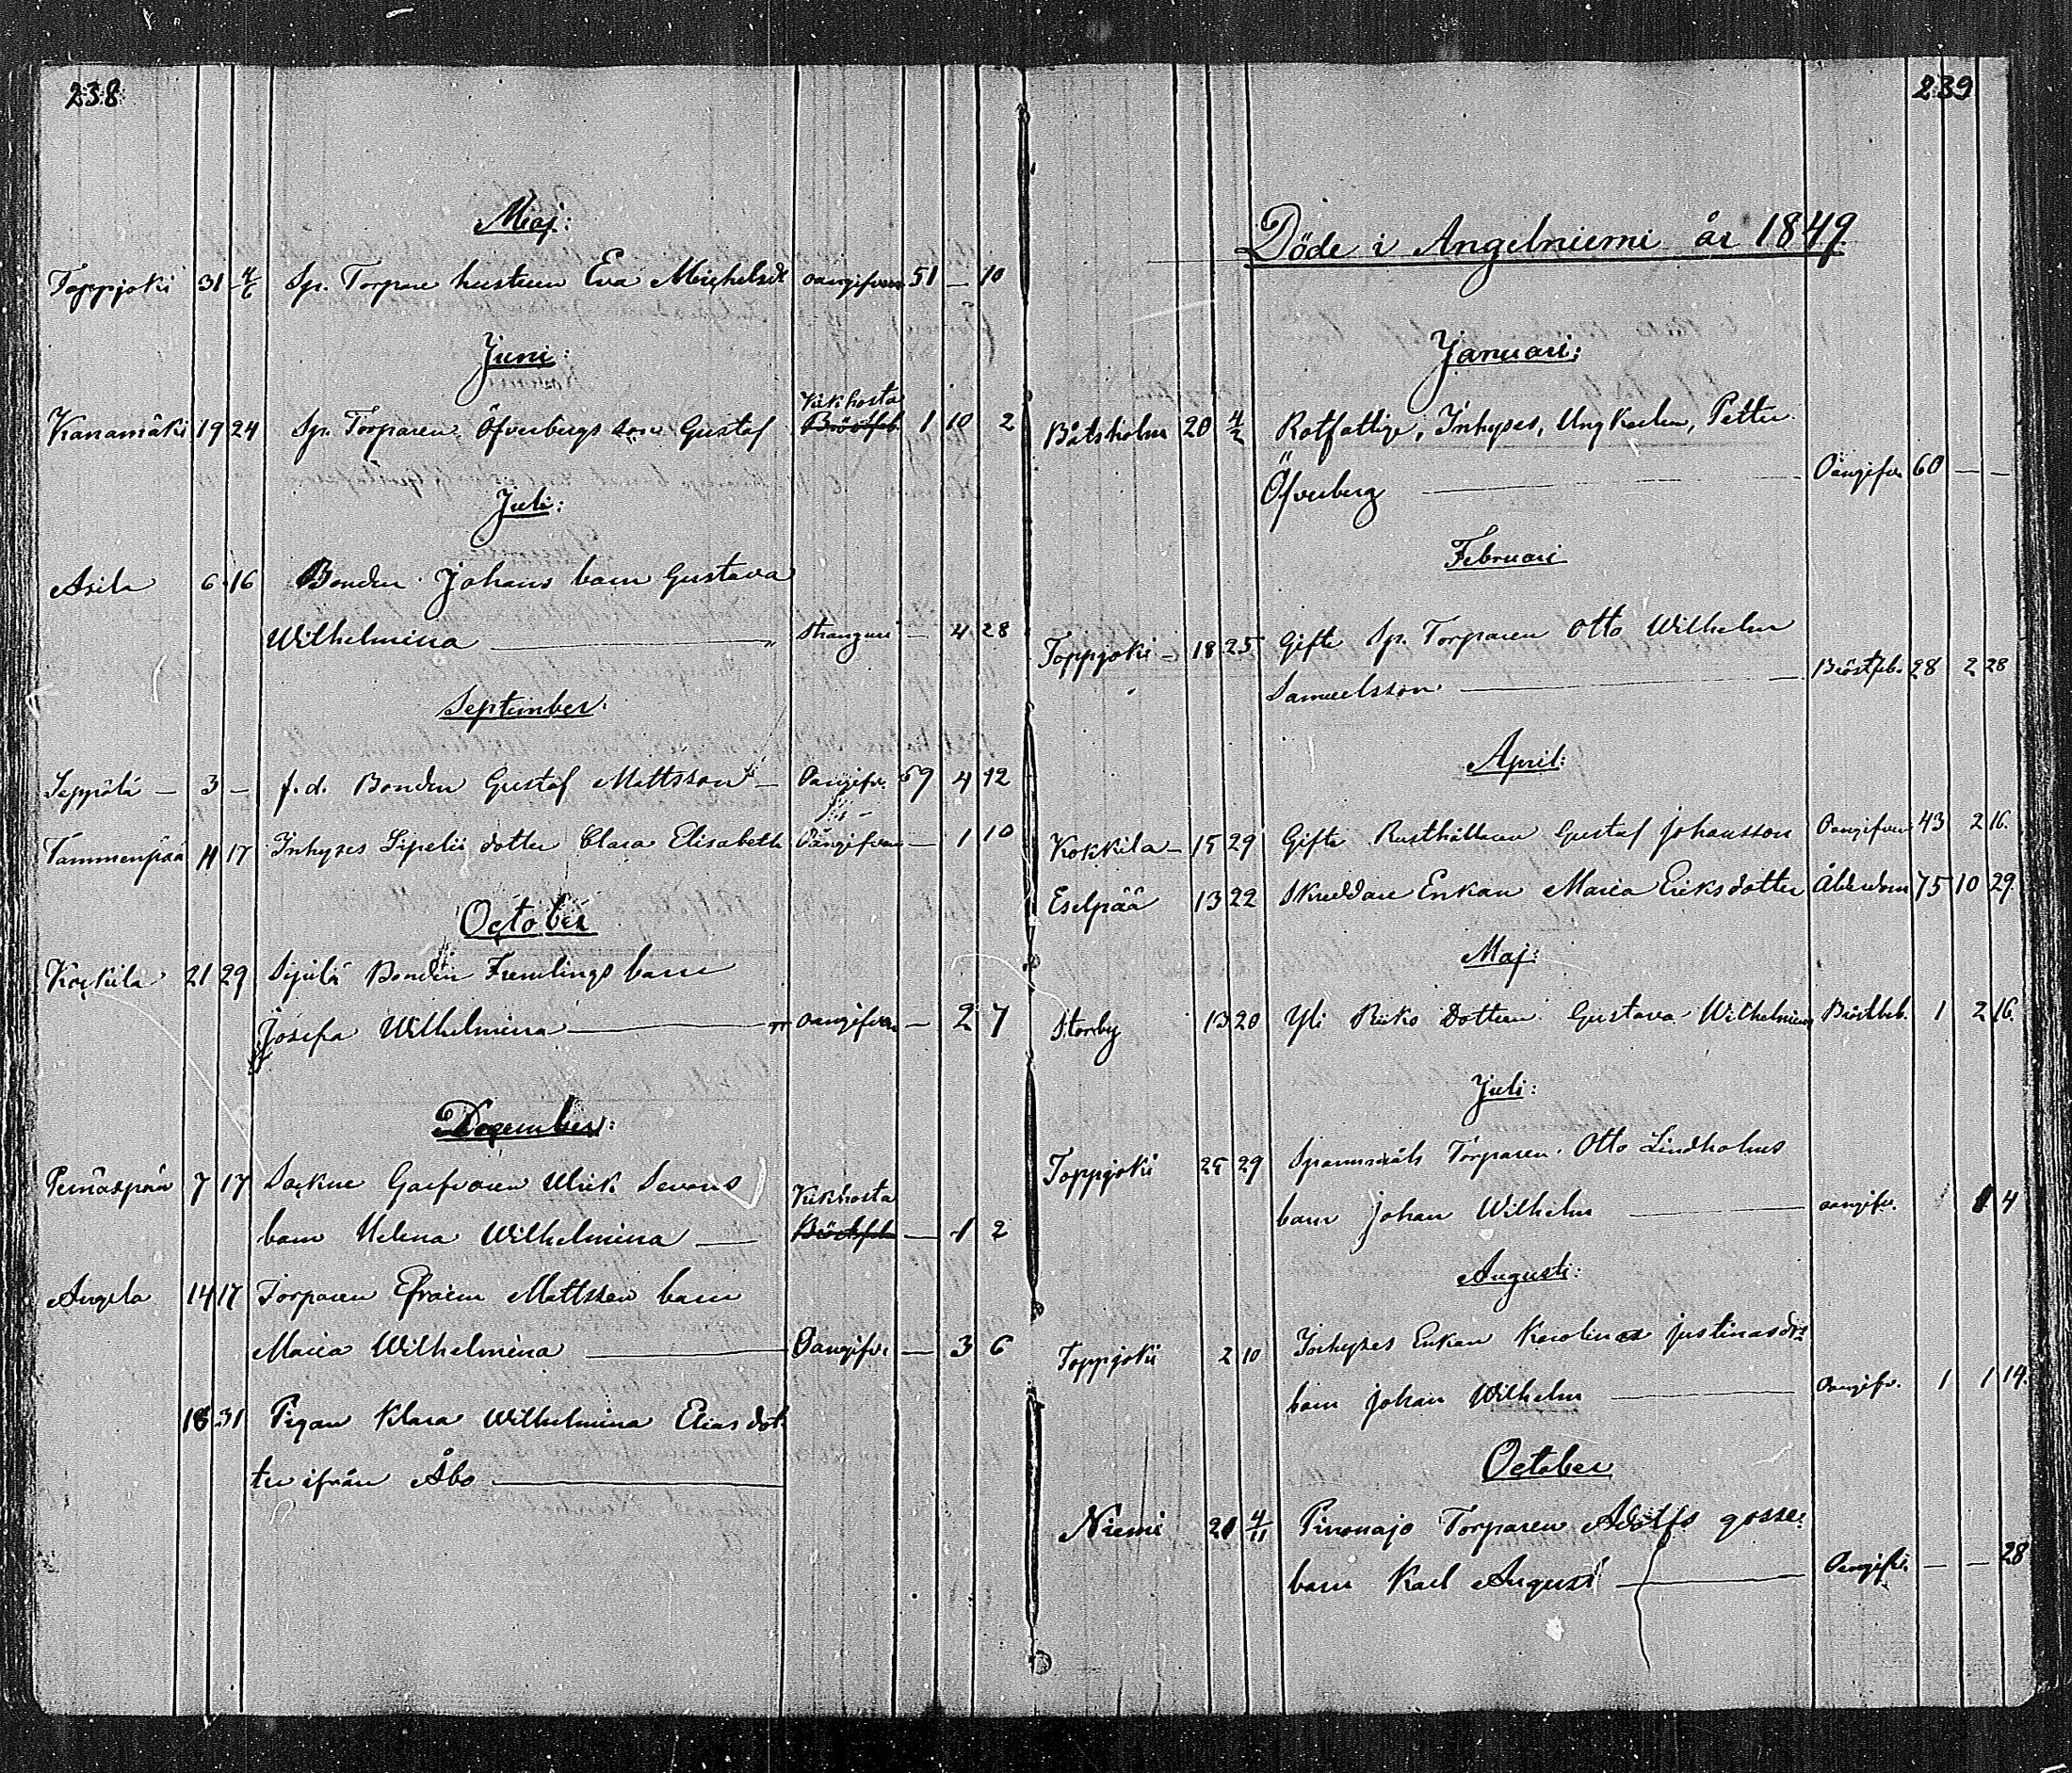 238
Maj:
Toppjoki 31 4/6 Sp. Torpare hustrun Eva Michelsdr oangifven 51 — 10
Juni:
Kikhosta
Kanamäki 19 24 Sp. Torparen Öfverbergs son Gustaf Bröstfeb. 1 10 2
Juli:
Asila 6 16 Bonden Johans barn Gustava
Wilhelmina — Stranguri — 4 28
September:
Seppälä — 3 — f.d. Bonden Gustaf Mattsson — Oangifv. 59 4 12
Tammenpää 11 17 Inhyses Sipelii dotter Clara Elisabeth Oangifven — 1 10
October
Kokkila 21 29 Sipilä Bonden Fremlings barn
Josefa Wilhelmina — oangifven — 2 7
December:
Pernäspää 7 17 Sockne Garfvaren Ulrik Sevons Kikhosta
barn Helena Wilhelmina — Bröstfeb — 1 2
Angela 14 17 Torparen Efraim Mattsson barn
Maria Wilhelmina — Oangifv. — 3 6
18 31 Pigan Klara Wilhelmina Eliasdot
ter ifrån Åbo —
239
Döde i Angelniemi år 1849.
Januari:
Båtsholm 20 4/2 Rotfattige, Inhyses, Ungkarlen, Petter
Öfverberg — Oangifv. 60 — —
Februari
Toppjoki — 18 25 Gifte Sp. Torparen Otto Wilhelm
Samuelsson — Bröstfeb. 28 2 28
April:
Kokkila — 15 29 Gifte Rusthållaren Gustaf Johansson Oangifven 43 2 16.
Eselpää 13 22 Skräddare Enkan Maria Eriksdotter Ålderdom 75 10 29.
Maj:
Storby 13 20 Yli Riiko Dottren Gustava Wilhelmina Bröstfeb. 1 2 16.
Juli:
Toppjoki 25 29 Torparen Otto Lindholms
barn Johan Wilhelm — oangifv. 1 4
Augusti:
Toppjoki 2 10 Inhyses Enkan Karolina Justinasdr
barn Johan Wilhelm — Oangifv. 1 1 14.
October
Niemi 21 4/11 Pinonajo Torparen Adolfs gosse
barn Karl August — Oangifv. — — 28